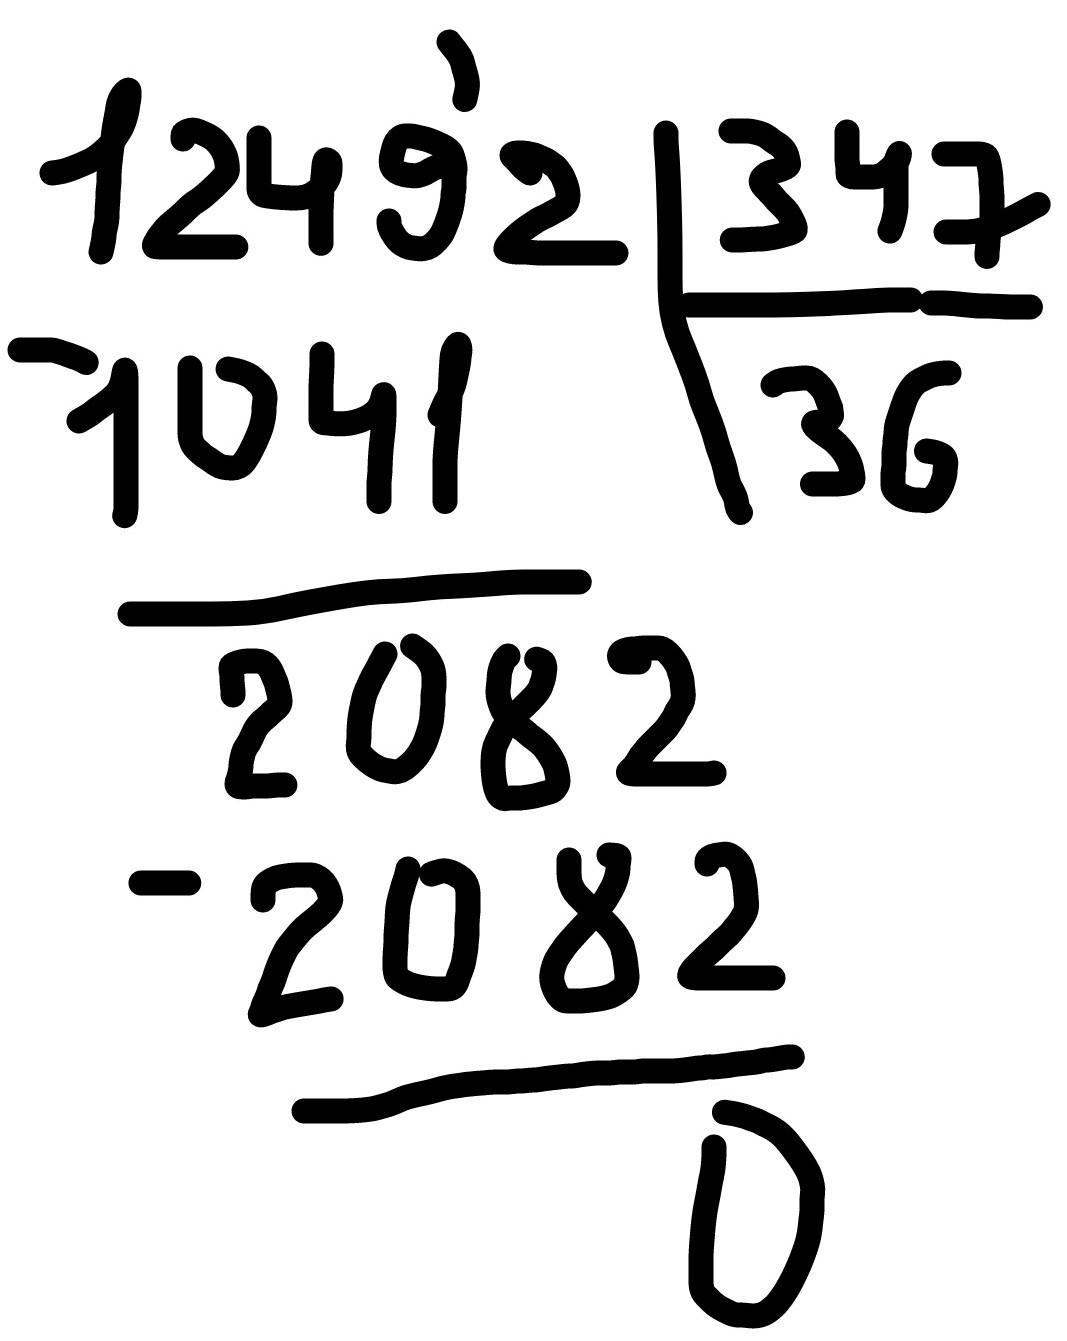 1249'2 347
-1041 36
2082
-2082
0